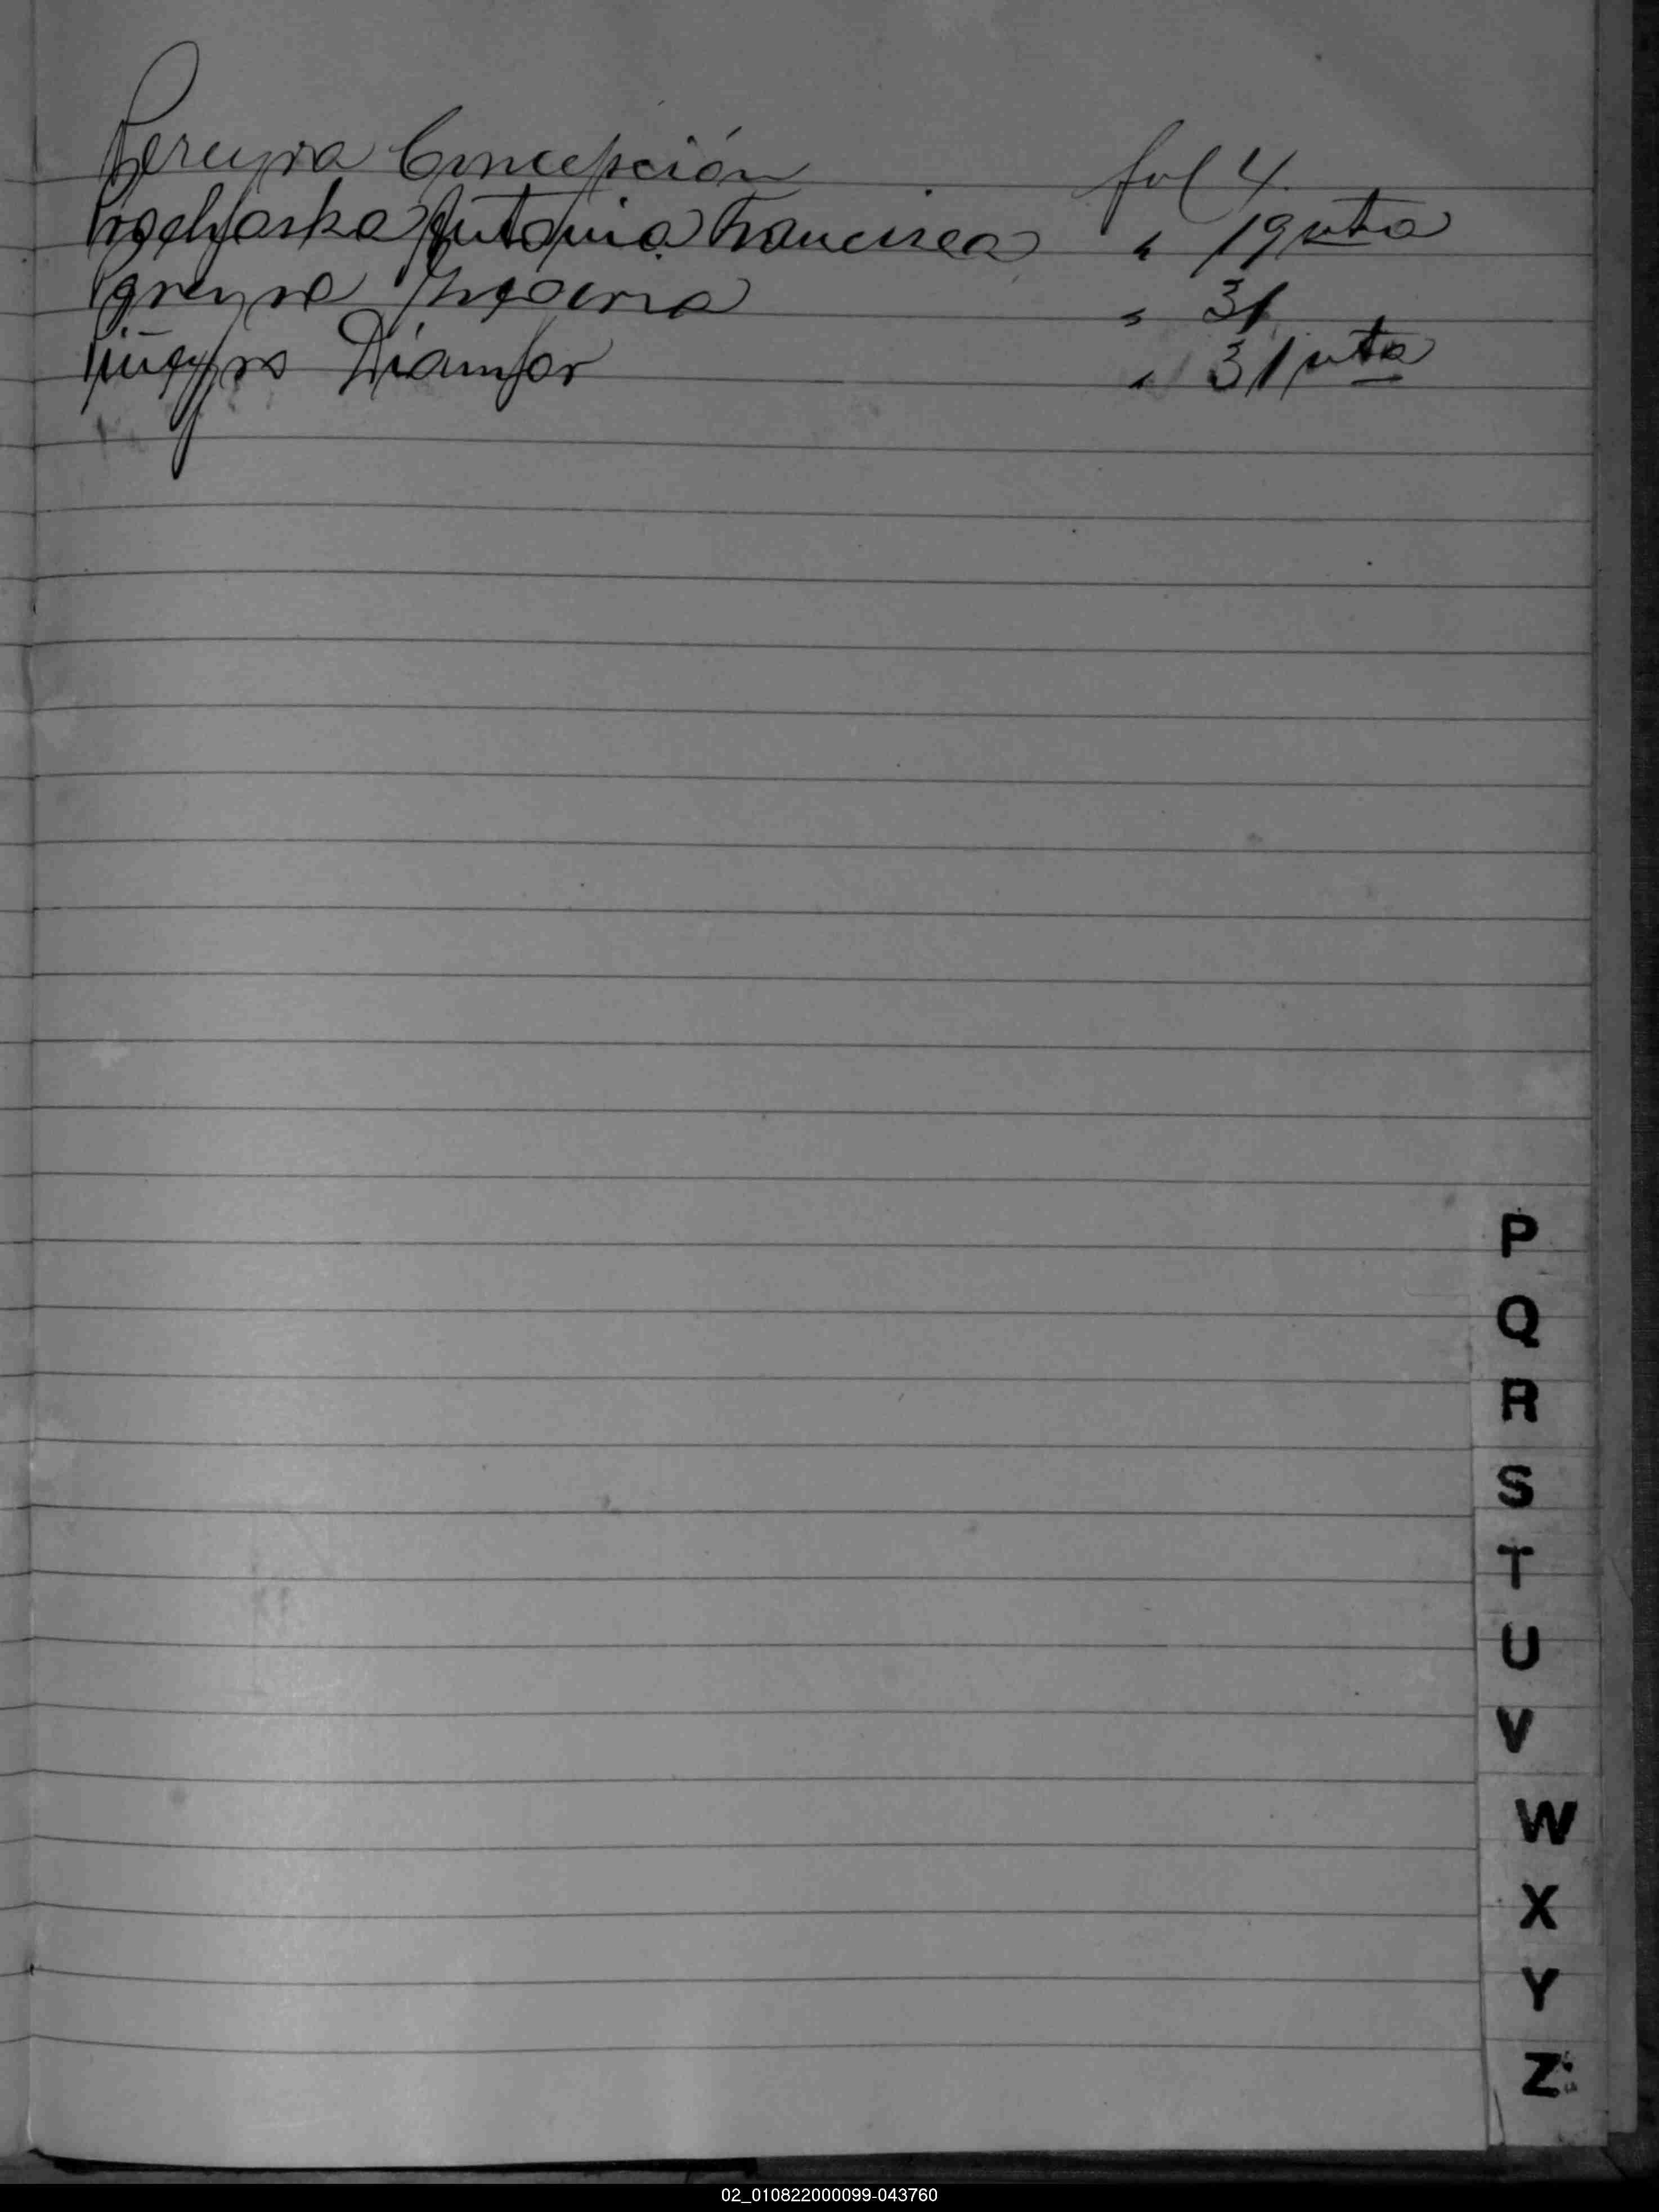 Pereyra Concepción fol 4.
Prochaska Antonia Francisca " 19 vta
Pereyra " 31
Piñeyro " 31 vta
P
Q
R
S
T
U
V
W
X
Y
Z
02_010822000099-043760